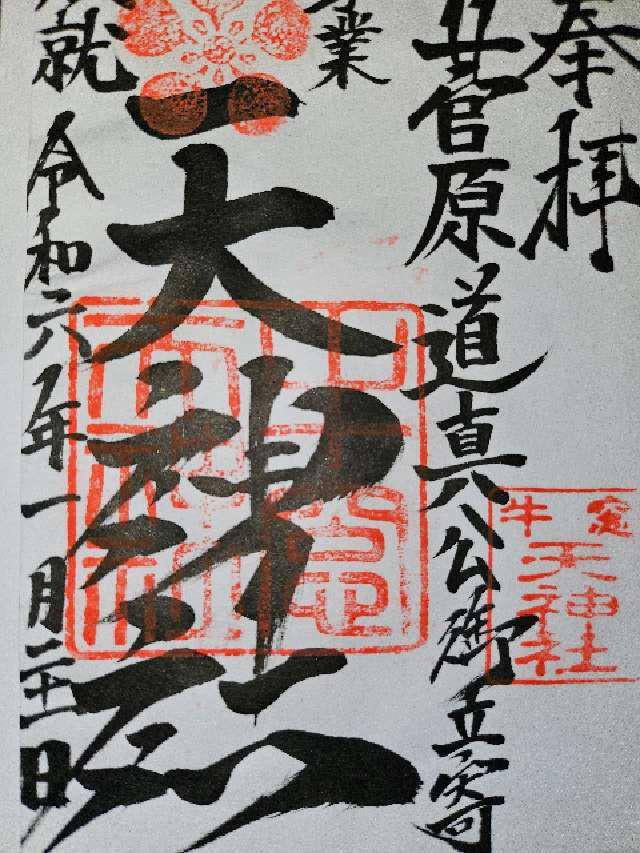 奉拝
菅原道真公御立寄
業
就
天神社
令和六年一月二十一日
牛窓
天神社